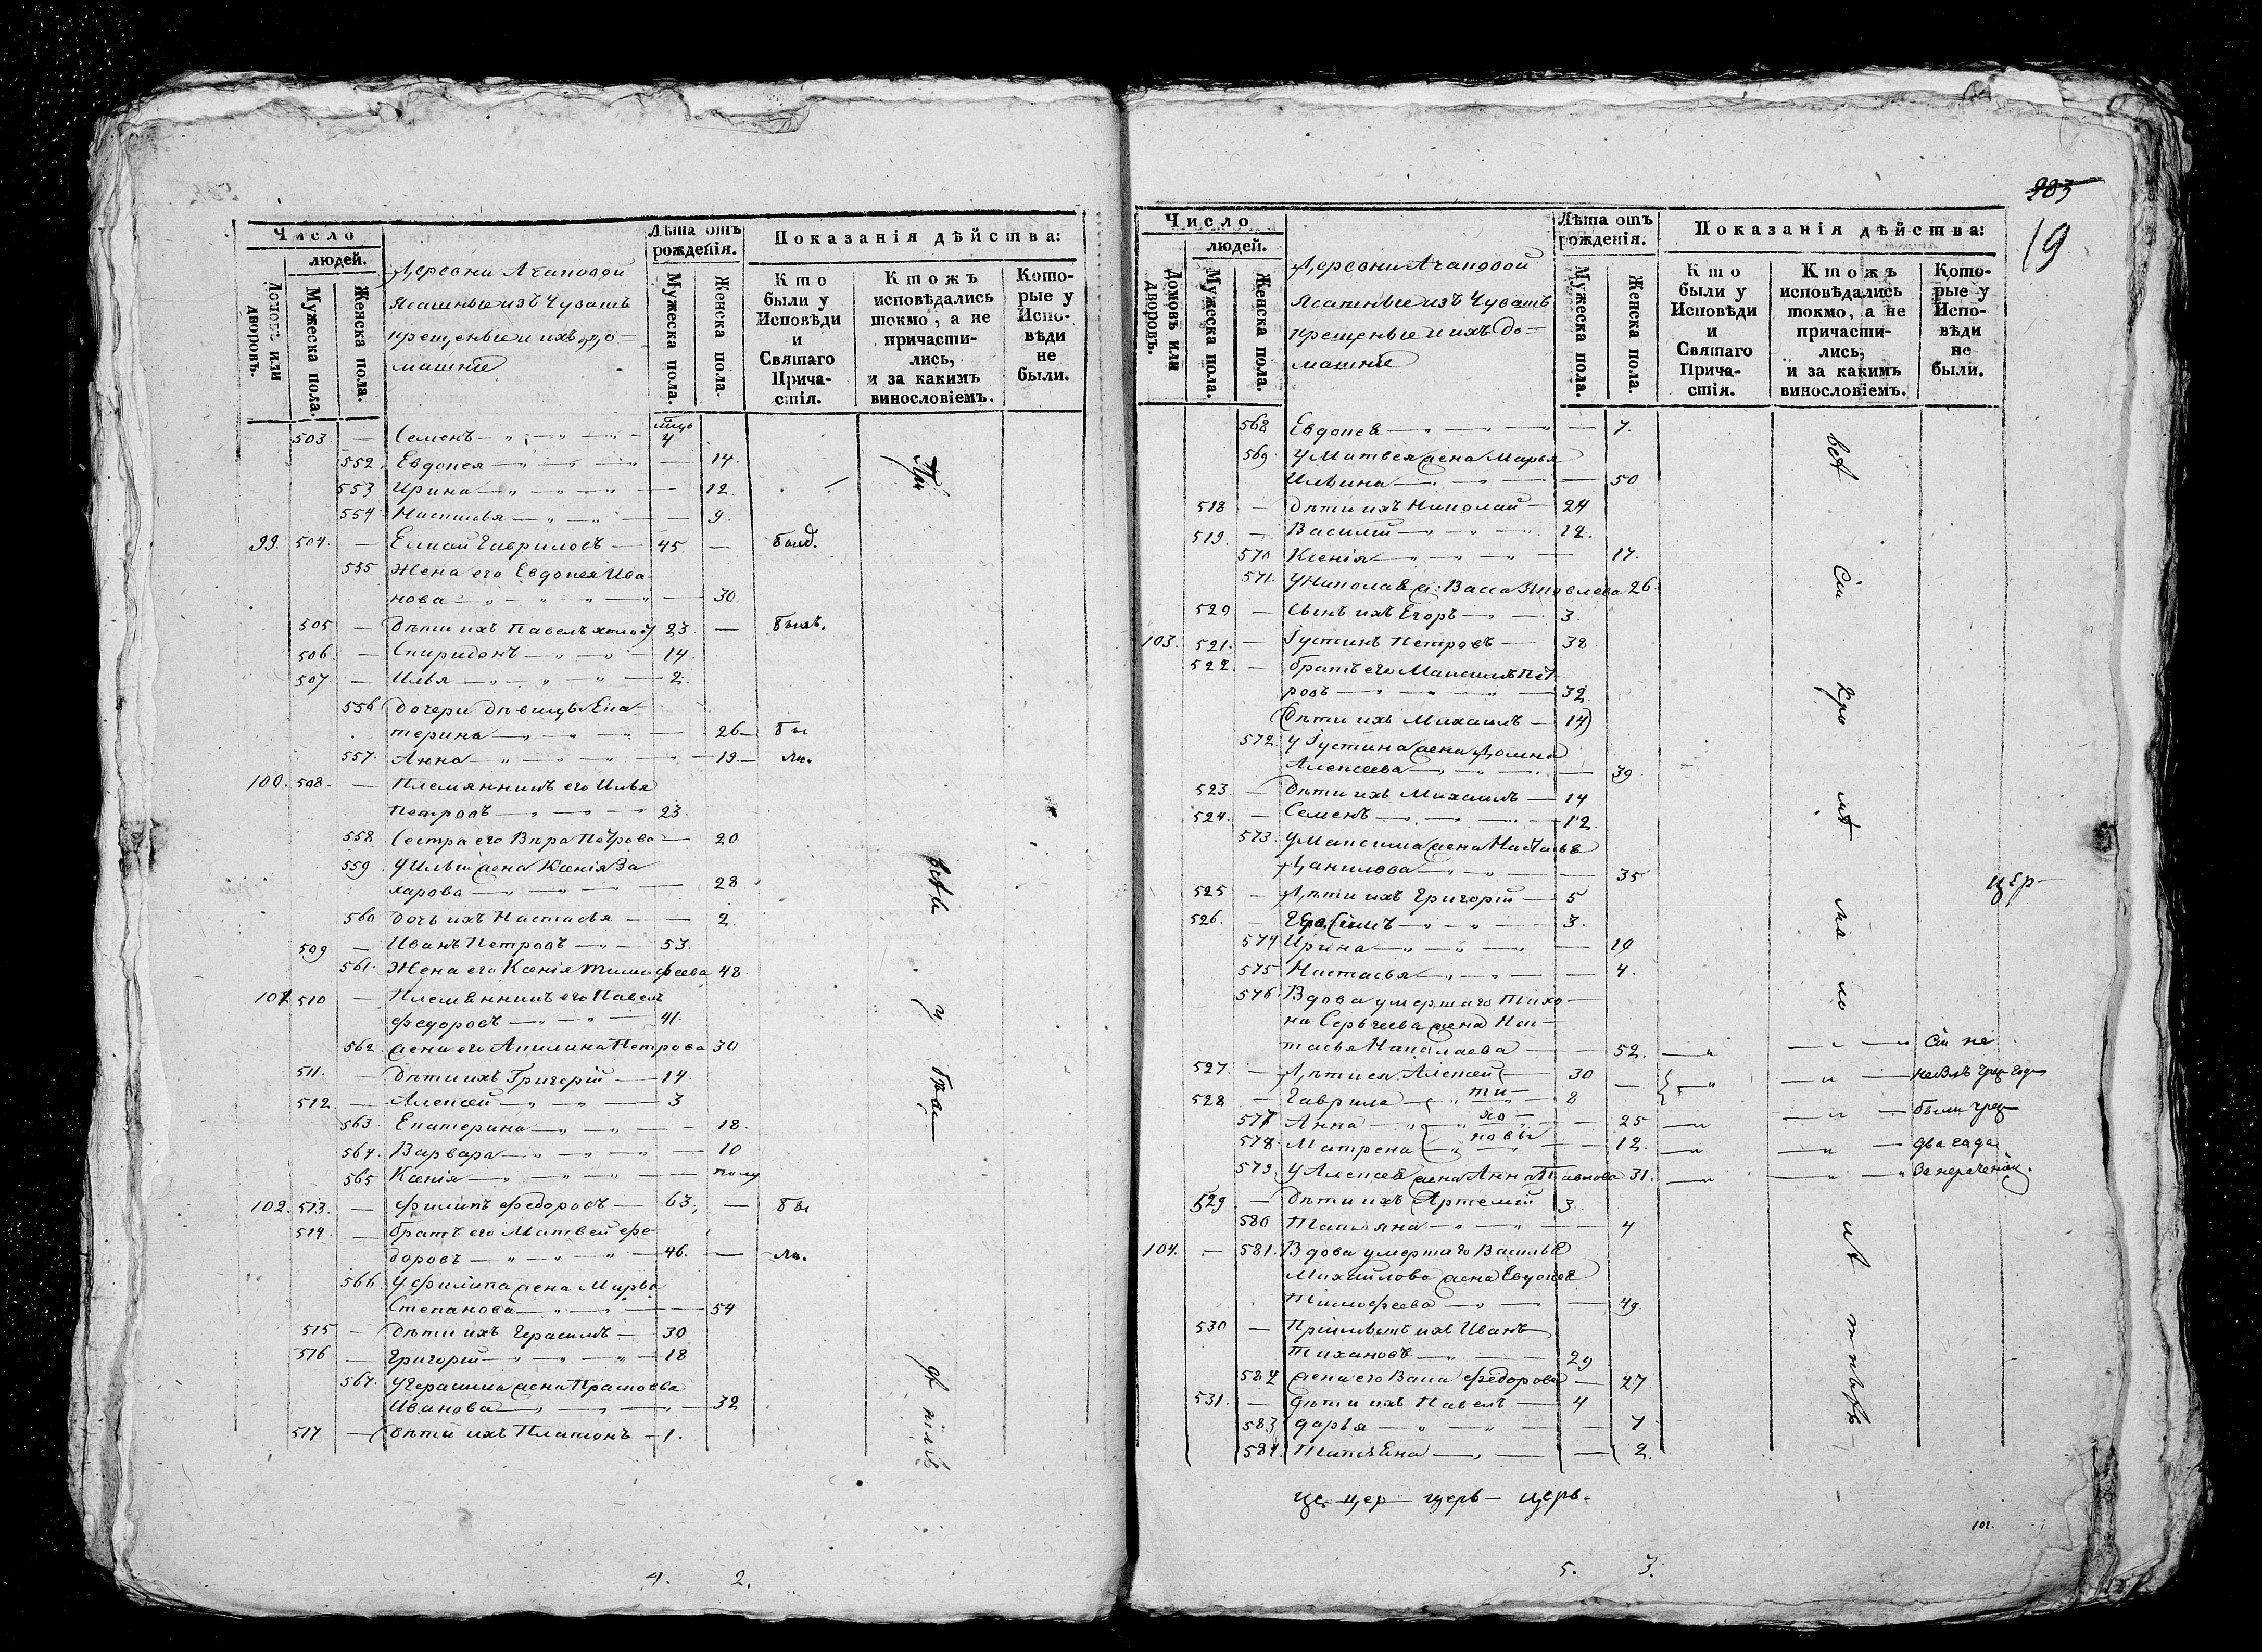 Число
людей.
Домовъ или дворовъ.
Мужеска пола.
Женска пола.
Деревни Ачаповой
ясашные изъ Чувашъ
крещеные и ихъ до=
машніе
Лѣта отъ рожденія.
Мужеска пола.
Женска пола.
Показанія дѣйства:
Кто были у Исповѣди и Святаго Прича-стія.
Ктожъ исповѣдались токмо, а не причасти-лись, и за какимъ винословіемъ.
Кото-рые у Испо-вѣди не были.
503. — Семенъ — 4
552. Евдокея — 14.
553 Ирина — 12.
554 Настасья — 9.
99. 504. — Елисѣй Гавриловъ — 45 —
555 Жена его Евдокея Ива
нова — 30
505 — Дѣти ихъ Павелъ холос 23. — былъ.
506. — Спиридонъ — 14.
507. — Илья — 2.
556 Дочери дѣвицы Ека
терина — 26 — бы
557. Анна — 19 — ли.
100. 508. — Племянникъ его Илья
Петровъ — 23.
558 Сестра его Вѣра Петрова — 20
559. У Ильи жена Ксенія За
харова — 28
560 Дочь ихъ Настасья — 2.
509 — Иванъ Петровъ — 53.
561. Жена его Ксенія Тимофеева 48.
101 510 — Племянникъ его Павелъ
Федоровъ — 41.
562. жена его Акилина Петрова 30
511. — Дѣти ихъ Григорій — 14.
512 — Алексей — 3
563. Екатерина — 18.
564. Варвара — 10
565 Ксенія — полу
102. 513. — Филипъ Федоровъ — 63. — бы
514 — Братъ его Матвей Фе
доровъ — 46. — ли.
566. У Филипа жена Марья
Степанова — 54
515 — Дѣти ихъ Герасимъ — 30
516 — Григорій — 18
567. У Герасима жена Прасковья
Иванова — 32
517 — Дѣти ихъ Платонъ — 1.
4. 2.
983
19
Число
людей.
Домовъ или дворовъ.
Мужеска пола.
Женска пола.
Деревни Ачаповой
ясашные изъ Чувашъ
крещеные и ихъ до=
машніе
Лѣта отъ рожденія.
Мужеска пола.
Женска пола.
Показанія дѣйства:
Кто были у Исповѣди и Святаго Прича-стія.
Ктожъ исповѣдались токмо, а не причасти-лись, и за какимъ винословіемъ.
Кото-рые у Испо-вѣди не были.
568 Евдокея — 7.
569. У Матвея жена Марья
Ильина — 50
518 — Дѣти ихъ Николай — 24
519. — Василій — 12.
570 Ксенія — 17.
571. У Николая ж: Васса Яковлева 26.
529 — Сынъ ихъ Егоръ — 3.
103. 521. — Іустинъ Петровъ — 38.
522. — братъ его Максимъ Пет
ровъ — 32.
(Дѣти ихъ Михаилъ — 14)
572. У Іустина жена Домна
Алексеева — 39.
523. — Дѣти ихъ Михаилъ — 14
524. — Семенъ — 12.
573. У Максима жена Настасья
Данилова — 35
525 — Дѣти ихъ Григорій — 5
526. — Герасимъ — 3.
574 Ирина — 10
575 Настасья — 4.
576. Вдова умершаго Тихо
на Сергеева жена Нас
тасья Николаева — 52. — сіи не
527. — Дѣти ея Алексей — 30
528 — Гаврила — ти — 8
577 Анна — хо — 25 — были чрез
578. Матрена — новы — 12. — два года
579. У Алексея жена Анна Павлова 31. — за нерачениемъ.
529 — Дѣти ихъ Артемій 3.
580 Татьяна — 4
104. — 581. Вдова умершаго Василья
Михайлова жена Евдокея
Тимофеева — 49
530 — Пріимышъ ихъ Иванъ
Тихановъ — 29
582 жена его Васса Федорова — 27.
531. — Дѣти ихъ Павелъ — 4
583 Дарья — 7
584. Татьяна — 2.
цер
це. цер — церь — церь.
101.
5. 3.